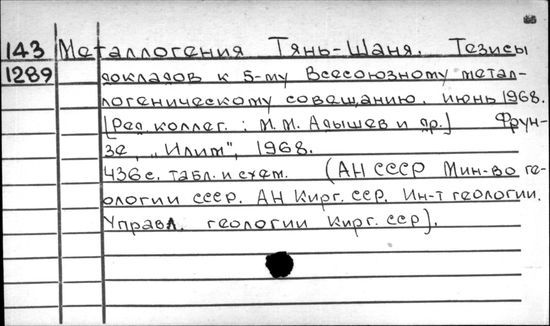 143 Металлогения Тянь-Шаня. Тезисы
1289 докладов к 5-му Всесоюзному метал-
логеническому совещанию. июнь 1968.
[Ред. коллег.: М.М. Адышев и др.] Фрун-
зе, „Илим", 1968.
436 с. табл. и схем. (АН СССР Мин-во ге-
ологии ссср. АН Кирг. сср. Ин-т геологии.
Управл. геологии Кирг. сср).